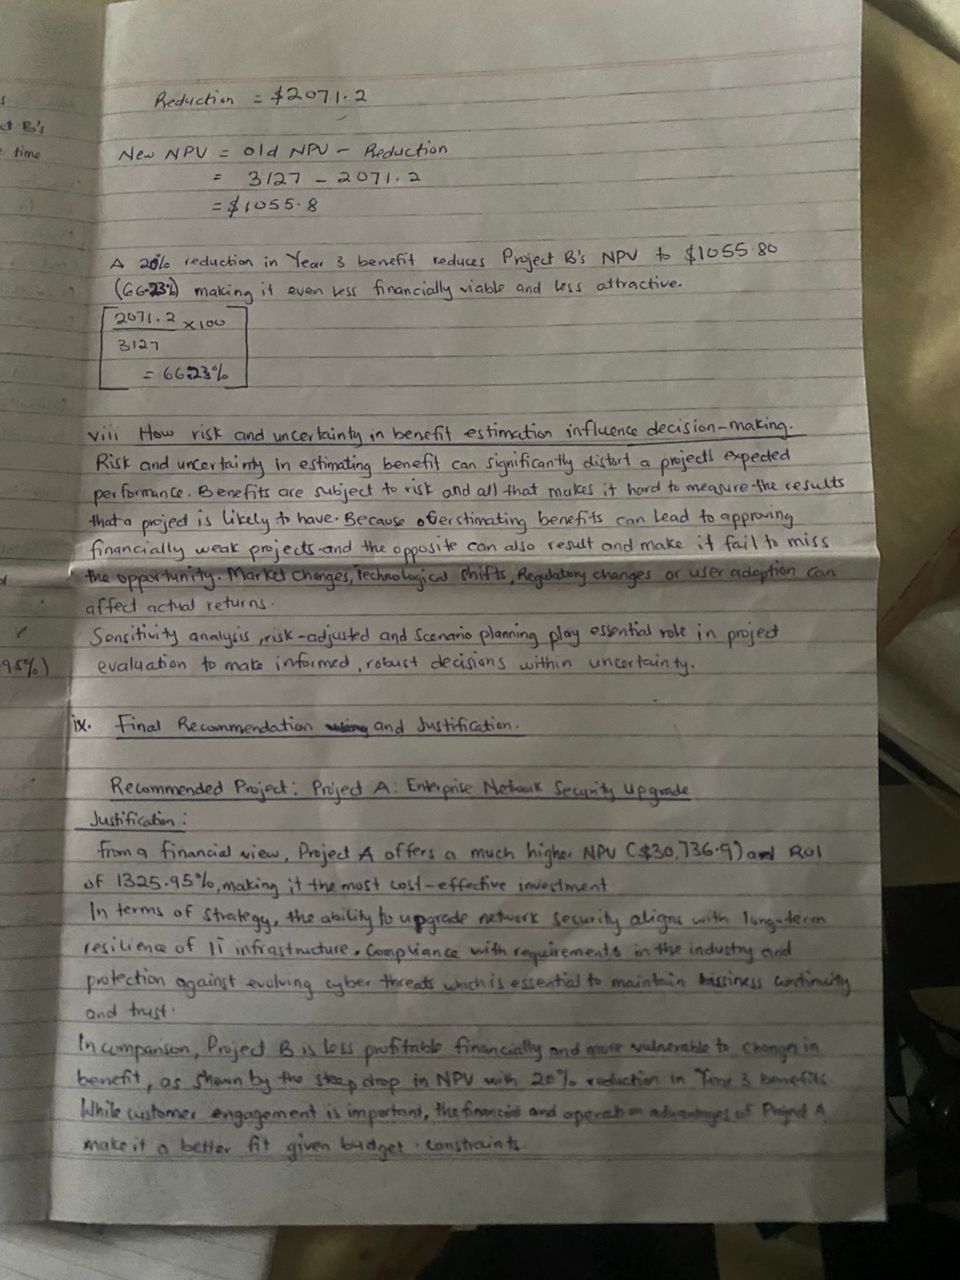 s
ct B's
e time
Reduction = $2071.2
New NPV = Old NPV - Reduction
= 3127 - 2071.2
= $1055.8
A 20% reduction in Year 3 benefit reduces Project B's NPV to $1055.80
(66.23%) making it even less financially viable and less attractive.
2071.2 x100
3127
= 66.23%
viii How risk and uncertainty in benefit estimation influence decision-making.
Risk and uncertainty in estimating benefit can significantly distort a project's expected
performance. Benefits are subject to risk and all that makes it hard to measure the results
that a project is likely to have. Because overstimating benefits can lead to approving
financially weak projects and the opposite can also result and make it fail to miss
the opportunity. Market Changes, Technological shifts, Regulatory changes or user adoption can
affect actual returns.
Sensitivity analysis, risk-adjusted and Scenario planning play essential role in project
95%) evaluation to make informed, robust decisions within uncertainty.
ix. Final Recommendation and Justification.
Recommended Project: Project A: Enterprise Network Security Upgrade
Justification:
From a financial view, Project A offers a much higher NPV ($30,736.9) and ROI
of 1325.95%, making it the most cost-effective investment
In terms of strategy, the ability to upgrade network security aligns with long-term
resilience of IT infrastructure, Compliance with requirements in the industry and
protection against evolving cyber threats which is essential to maintain bussiness continuity
and trust.
In comparison, Project B is less profitable financially and more vulnerable to change in
benefit, as shown by the steep drop in NPV with 20% reduction in Year 3 benefits
While customer engagement is important, the financial and operation advantages of Project A
make it a better fit given budget constraints.